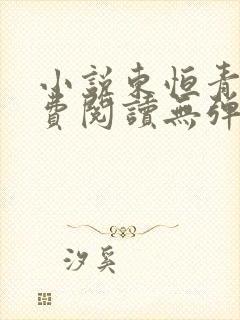 小說東恒青
費閱讀無彈
汐奚